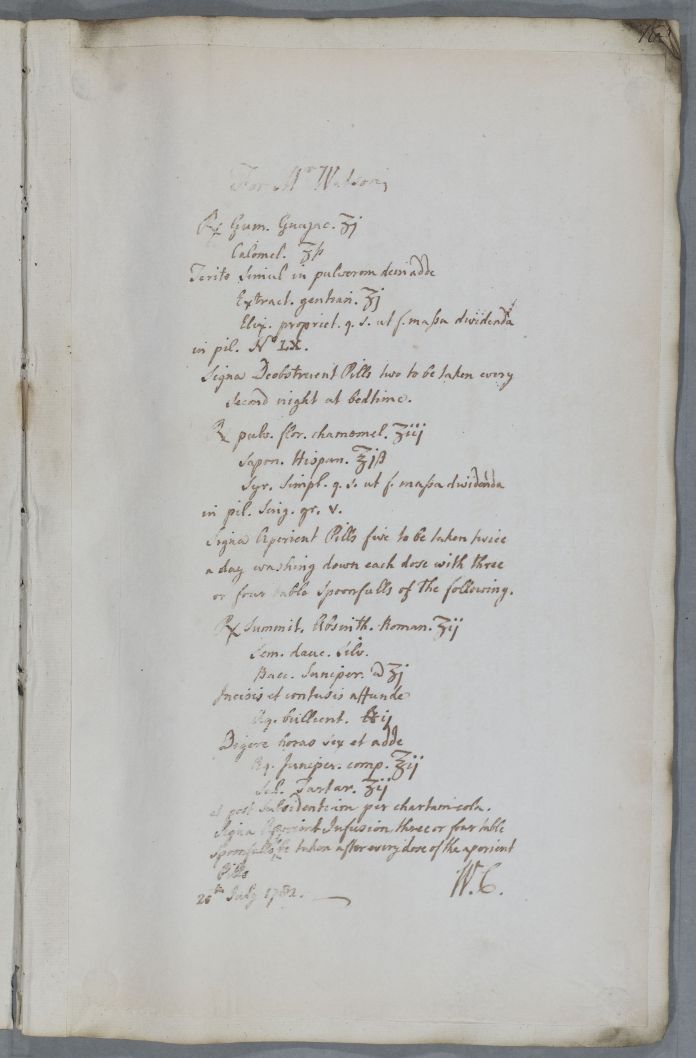 For Mr Watson,
Rx Gum. Guajac. ʒj
Calomel. ʒß
Terito simul in pulverem dein adde
Extract. gentian. ʒj
Elix. propriet. q. s. ut f. massa dividenda
in pil. No LX.
Signa Deobstruent Pills two to be taken every
second night at bedtime.
Rx pulv. flor. chamomel. ʒiij
Sapon. Hispan. ʒjß
Syr. simpl. q. s. ut f. massa dividenda
in pil. sing. gr. v.
Signa Aperient Pills five to be taken twice
a day washing down each dose with three
or four table spoonfulls of the following.
Rx Summit. Absinth. Roman. ʒij
Sem. dauc. silv.
Bacc. Juniper. a ʒj
Incisis et contusis affunde
Aq. bullient. ℔ij
Digere horas sex et adde
Aq. Juniper. comp. ʒij
Sal. Tartar. ʒij
et post subsidentiam per chartam cola.
Signa Aperient Infusion three or four table
spoonfulls to be taken after every dose of the aperient
Pills
28th July 1782.
W. C.